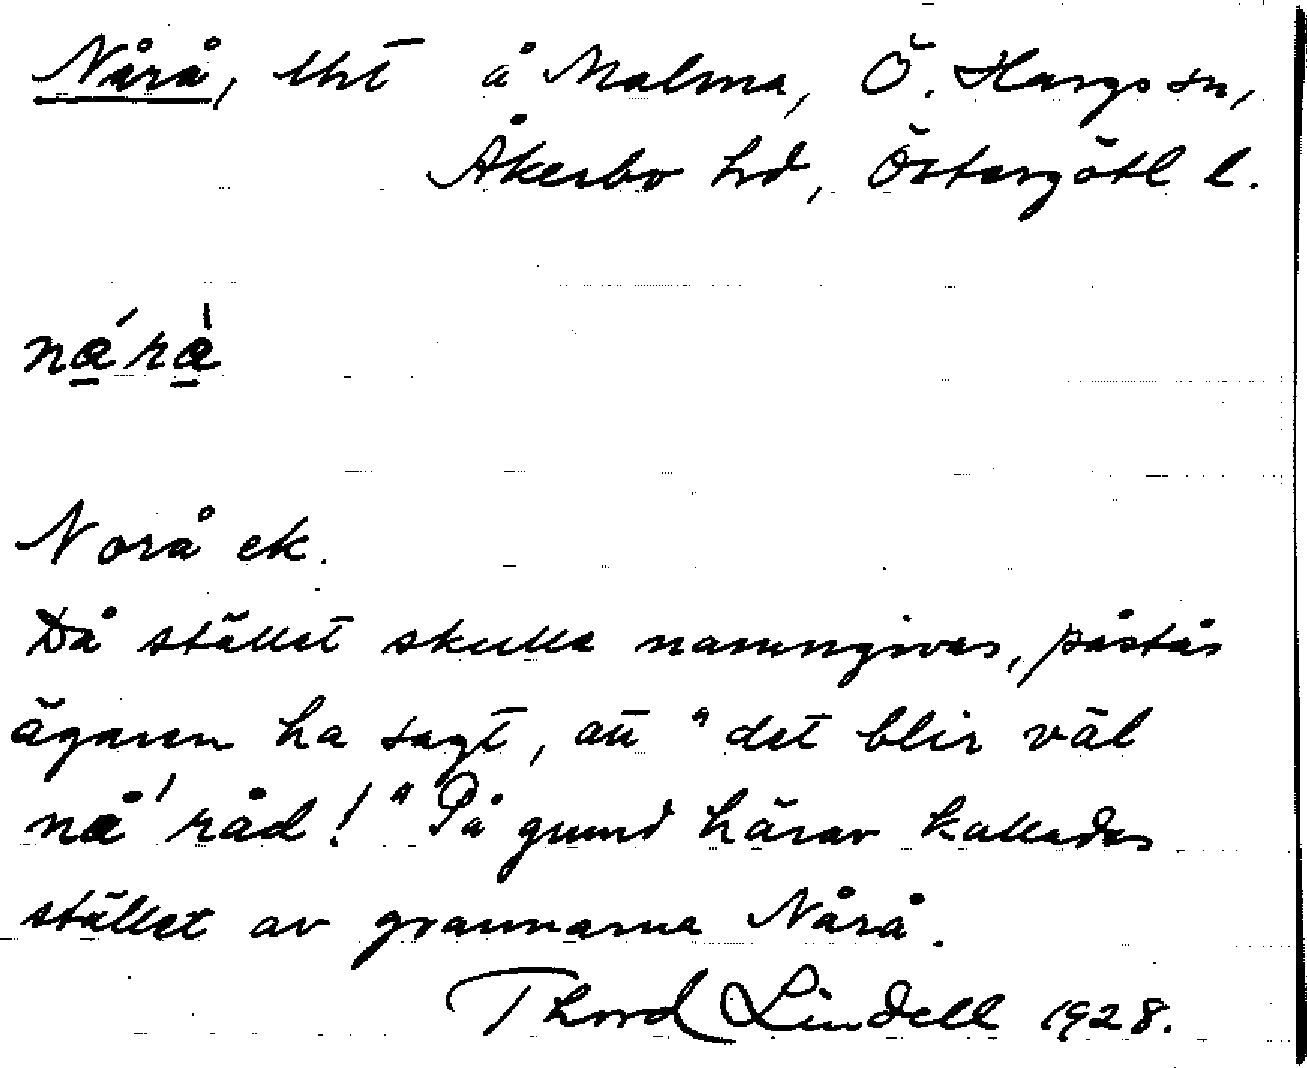 Nårå, lht å Malma, Ö. Hargs sn,
Åkerbo hd, Östergötl l.
nάrὰ
Norå ek.
Då stället skulle namngivas, påstås
ägaren ha sagt, att "det blir väl
nå' råd!" På grund härav kallades
stället av grannarna Nårå.
Thord Lindell 1928.